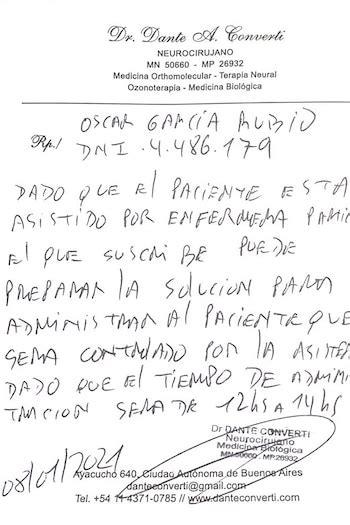 Dr. Dante A. Converti
NEUROCIRUJANO
MN 50660 - MP 26932
Medicina Orthomolecular - Terapia Neural
Ozonoterapia - Medicina Biológica
OSCAR GARCÍA RUBIO
Rp./ DNI .4.486.179
DADO QUE El PACIENTE ESTA
ASISTIDO POR ENFERMERA
El QUE SUSCRIBE PUEDE
PREPARAR lA SOLUCION PARA
ADMINISTRAR Al PACIENTE QUE
SERA CONTROLADO POR lA
DADO QUE El TIEMPO DE ADMINI
TRACION SERA DE 12 hs A 14 hs
Dr DANTE CONVERTI
Neurocirujano
Medicina Biológica
MN 50660 - MP 26932
08/01/2021
Ayacucho 640, Ciudad Autónoma de Buenos Aires
danteconverti@gmail.com
Tel. +54 11 4371-0785 // www.danteconverti.com